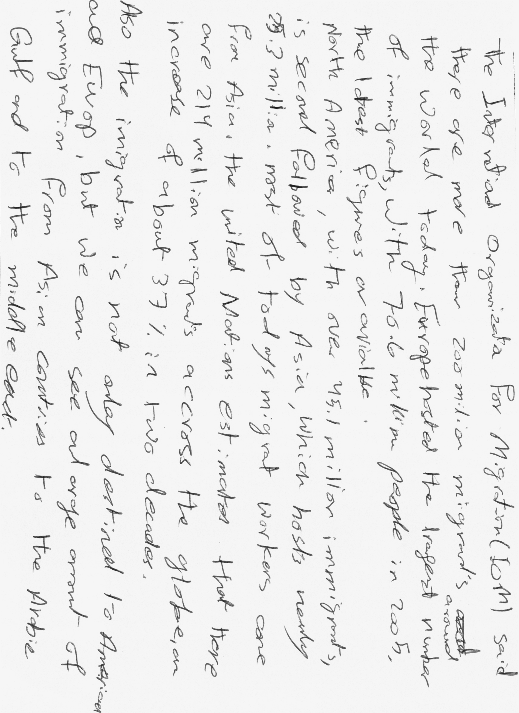 the International Organizata for Migration (IOM) said
there are more than 200 milion migrant's around
the world today. Europe hosted the lragest number
of immigrants, with 70.6 million people in 2005,
the latest figures or avialble.
North America, with over 45.1 million immigrants,
is second followed by Asia, which hosts nearly
25.3 million. most of todays migrat workers come
from Asia. the united Nations estimated that there
are 214 million migrats accross the globe, an
increase of about 37% in two decades.
Also the imigration is not only destined to American
and Europ, but we can see a large amount of
immigration from Asian countries to the Arabic
Gulf and to the middle east.